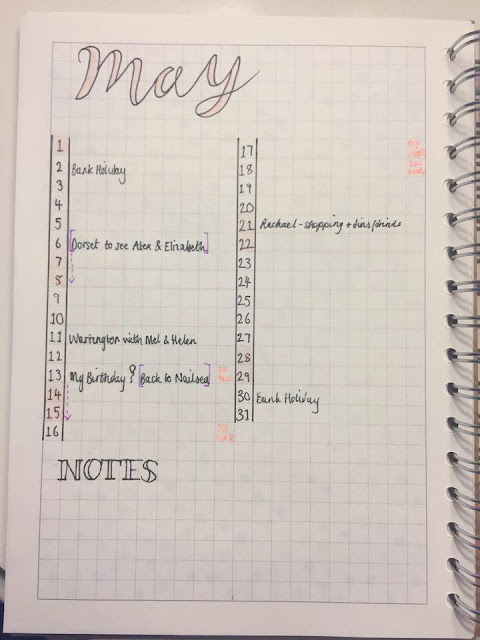 May
1
2 Bank Holiday
3
4
5
6 [Dorset to see Alex & Elizabeth]
7
8
9
10
11 Warrington with Mel & Helen
12
13 My Birthday [Back to Nailsea] off work
14
15
16 off work
17 off work
18 off work
19
20
21 Rachael - shopping + dins/drinks
22
23
24
25
26
27
28
29
30 Bank Holiday
31
NOTES